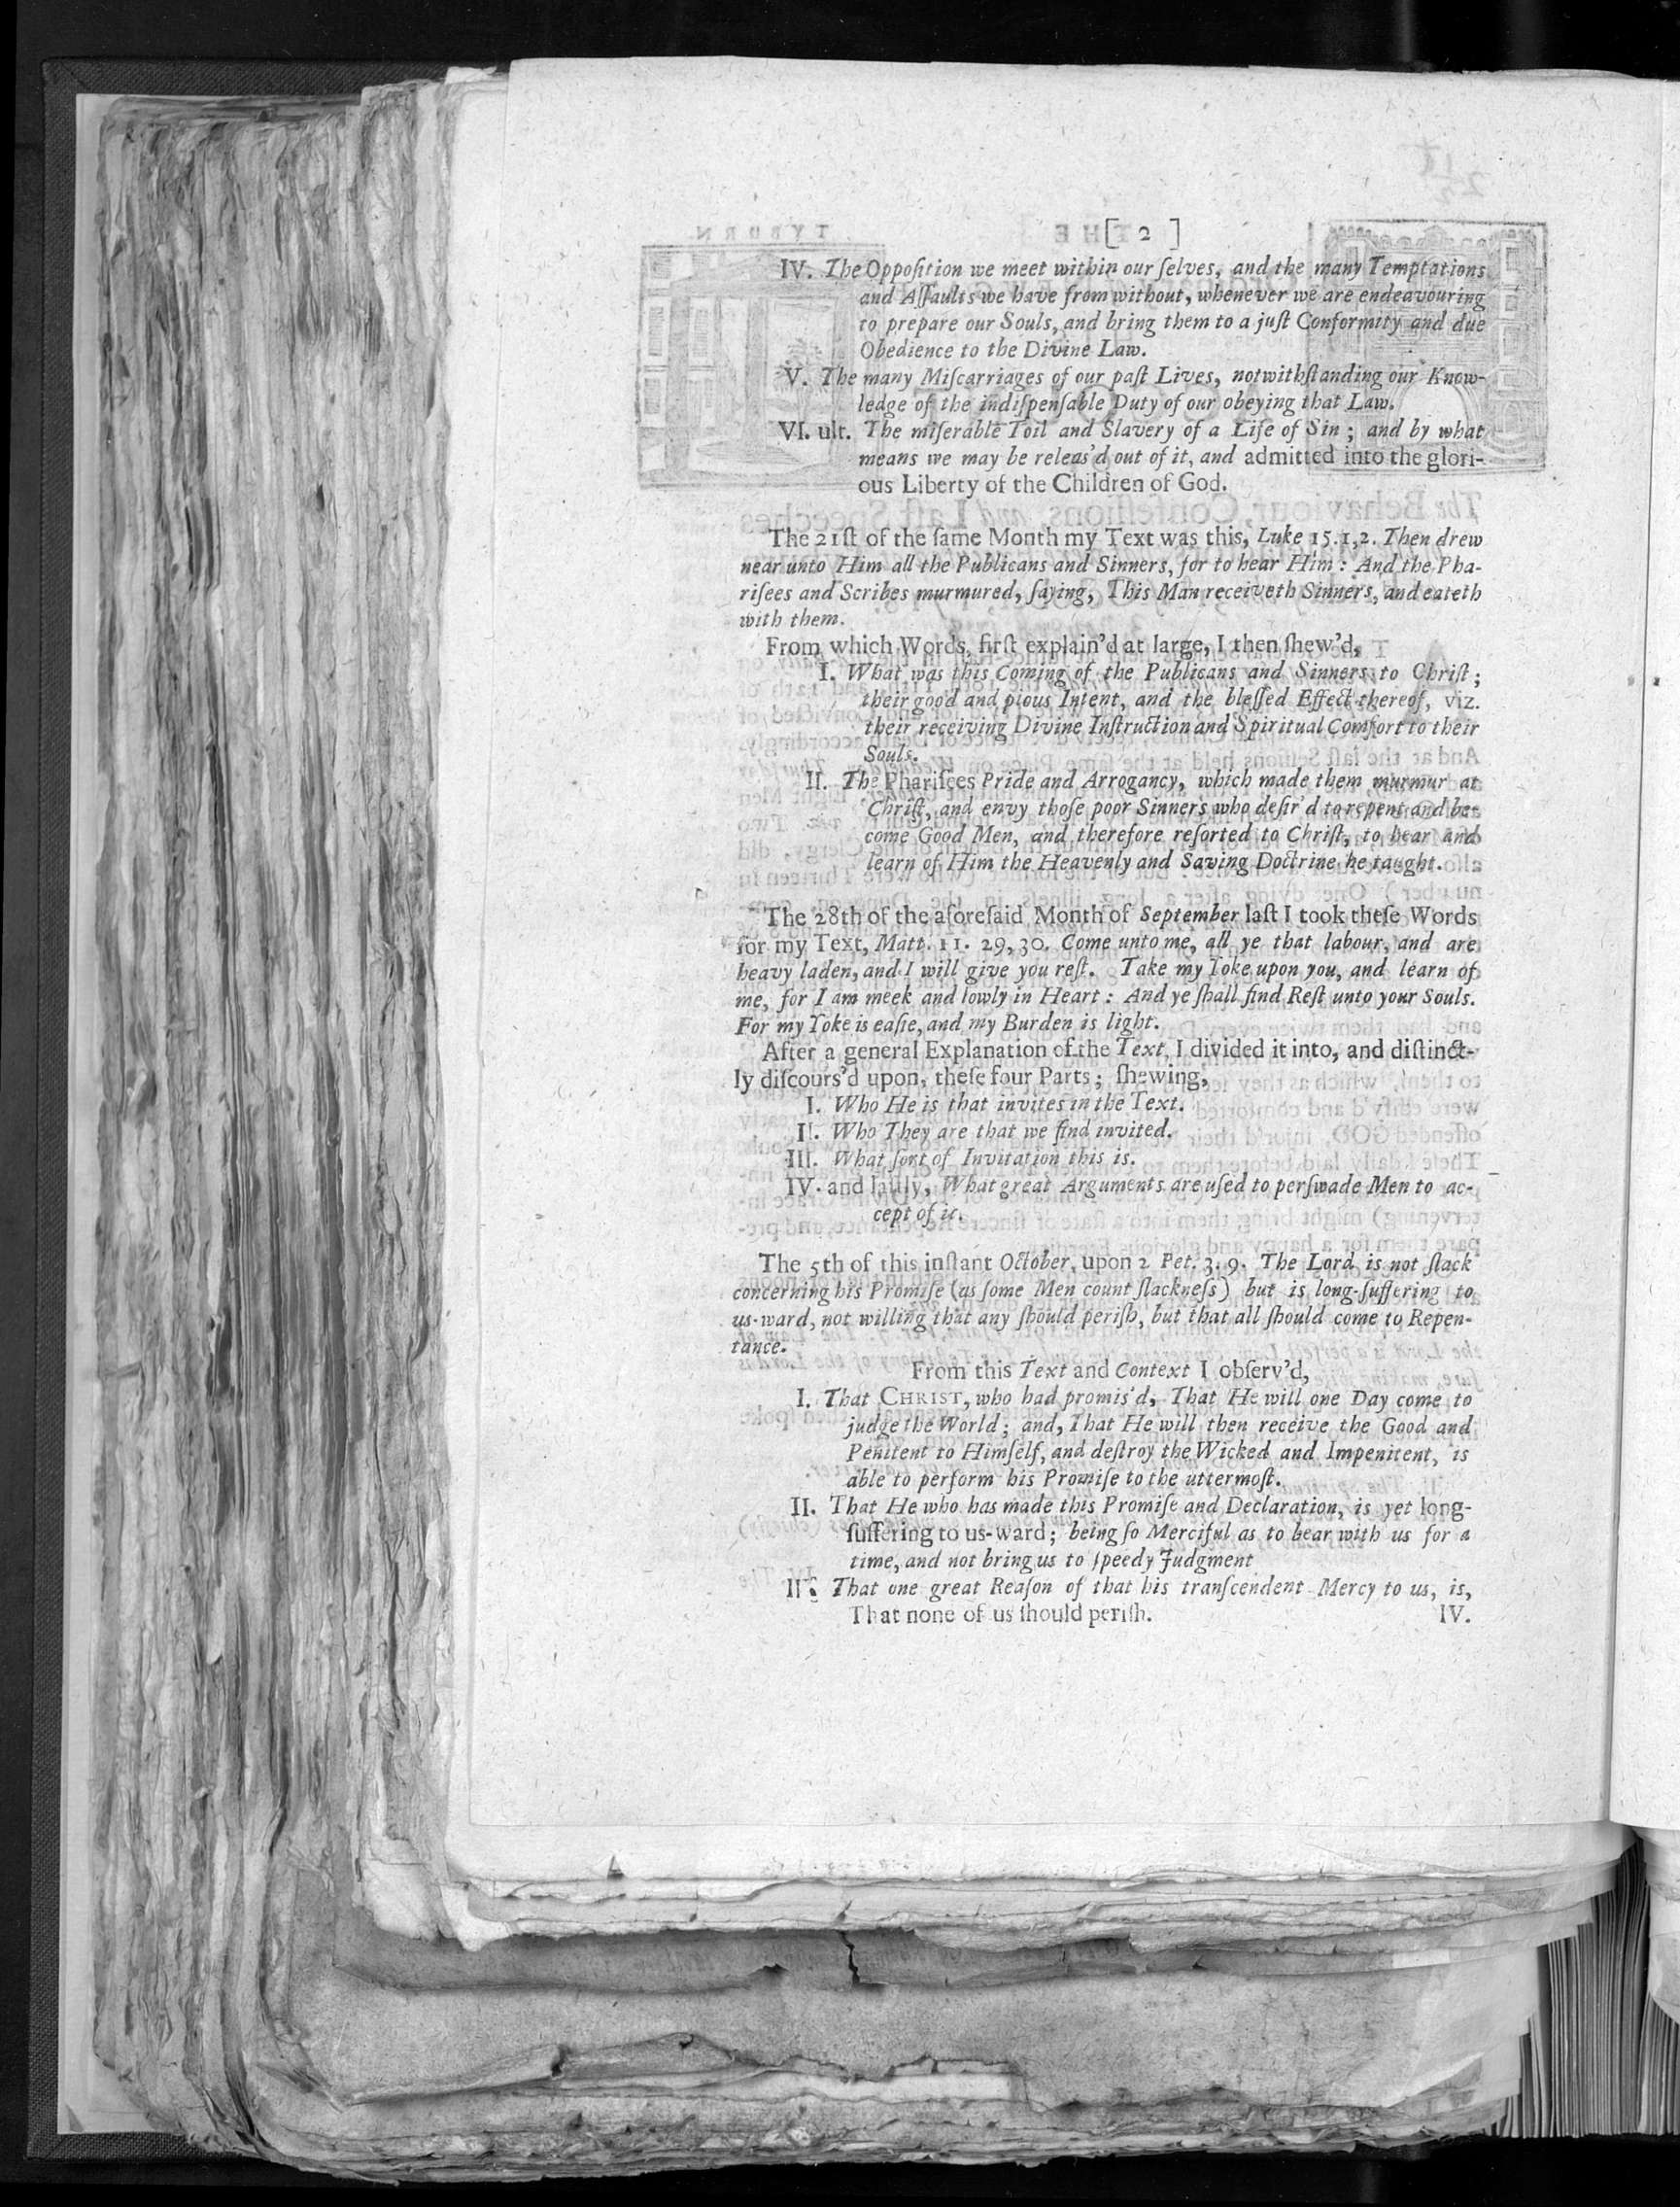 [ 2 ]
IV. The Oppoſition we meet within our ſelves, and the many Temptations
and Aſſaults we have from without, whenever we are endeavouring
to prepare our Souls, and bring them to a juſt Conformity and due
Obedience to the Divine Law.
V. The many Miſcarriages of our paſt Lives, notwithſtanding our Know-
ledge of the indiſpenſable Duty of our obeying that Law.
VI. ult. The miſerable Toil and Slavery of a Life of Sin; and by what
means we may be releas'd out of it, and admitted into the glori-
ous Liberty of the Children of God.
The 21ſt of the ſame Month my Text was this, Luke 15.1,2. Then drew
near unto Him all the Publicans and Sinners, for to hear Him: And the Pha-
riſees and Scribes murmured, ſaying, This Man receiveth Sinners, and eateth
with them.
From which Words, firſt explain'd at large, I then ſhew'd,
I. What was this Coming of the Publicans and Sinners to Chriſt;
their good and pious Intent, and the bleſſed Effect thereof, viz.
their receiving Divine Inſtruction and Spiritual Comfort to their
Souls.
II. The Phariſees Pride and Arrogancy, which made them murmur at
Chriſt, and envy thoſe poor Sinners who deſir'd to repent and be-
come Good Men, and therefore reſorted to Chriſt, to hear and
learn of Him the Heavenly and Saving Doctrine he taught.
The 28th of the aforeſaid Month of September laſt I took theſe Words
for my Text, Matt. 11. 29, 30. Come unto me, all ye that labour, and are
heavy laden, and I will give you reſt. Take my Yoke upon you, and learn of
me, for I am meek and lowly in Heart: And ye ſhall find Reſt unto your Souls.
For my Yoke is eaſie, and my Burden is light.
After a general Explanation of the Text, I divided it into, and diſtinct-
ly diſcours'd upon, theſe four Parts; ſhewing,
I. Who He is that invites in the Text.
II. Who They are that we find invited.
III. What ſort of Invitation this is.
IV. and laſtly, What great Arguments are uſed to perſwade Men to ac-
cept of it.
The 5th of this inſtant October, upon 2 Pet. 3. 9. The Lord is not ſlack
concerning his Promiſe (as ſome Men count ſlackneſs) but is long-ſuffering to
us-ward, not willing that any ſhould periſh, but that all ſhould come to Repen-
tance.
From this Text and Context I obſerv'd,
I. That CHRIST, who had promis'd, That He will one Day come to
judge the World; and, That He will then receive the Good and
Penitent to Himſelf, and deſtroy the Wicked and Impenitent, is
able to perform his Promiſe to the uttermoſt.
II. That He who has made this Promiſe and Declaration, is yet long-
ſuffering to us-ward; being ſo Merciful as to bear with us for a
time, and not bring us to ſpeedy Judgment
III. That one great Reaſon of that his tranſcendent Mercy to us, is,
That none of us ſhould periſh.
IV.